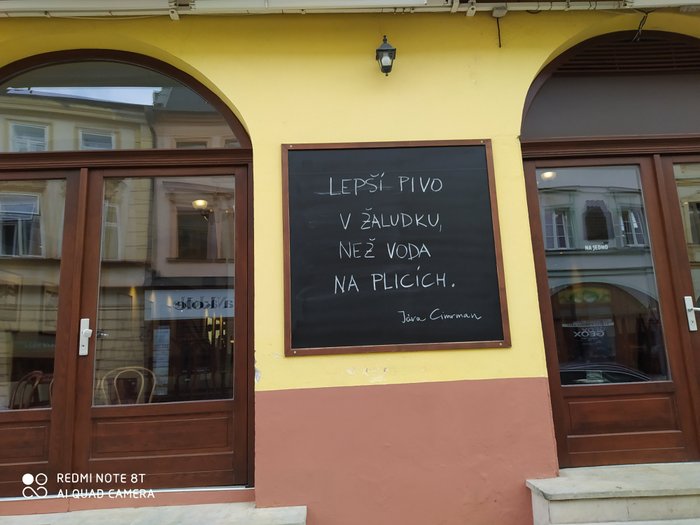 LEPŠÍ PIVO
V ŽALUDKU,
NEŽ VODA
NA PLICÍCH.
Jára Cimrman
NA JEDNO
GEOX
REDMI NOTE 8T
AI QUAD CAMERA